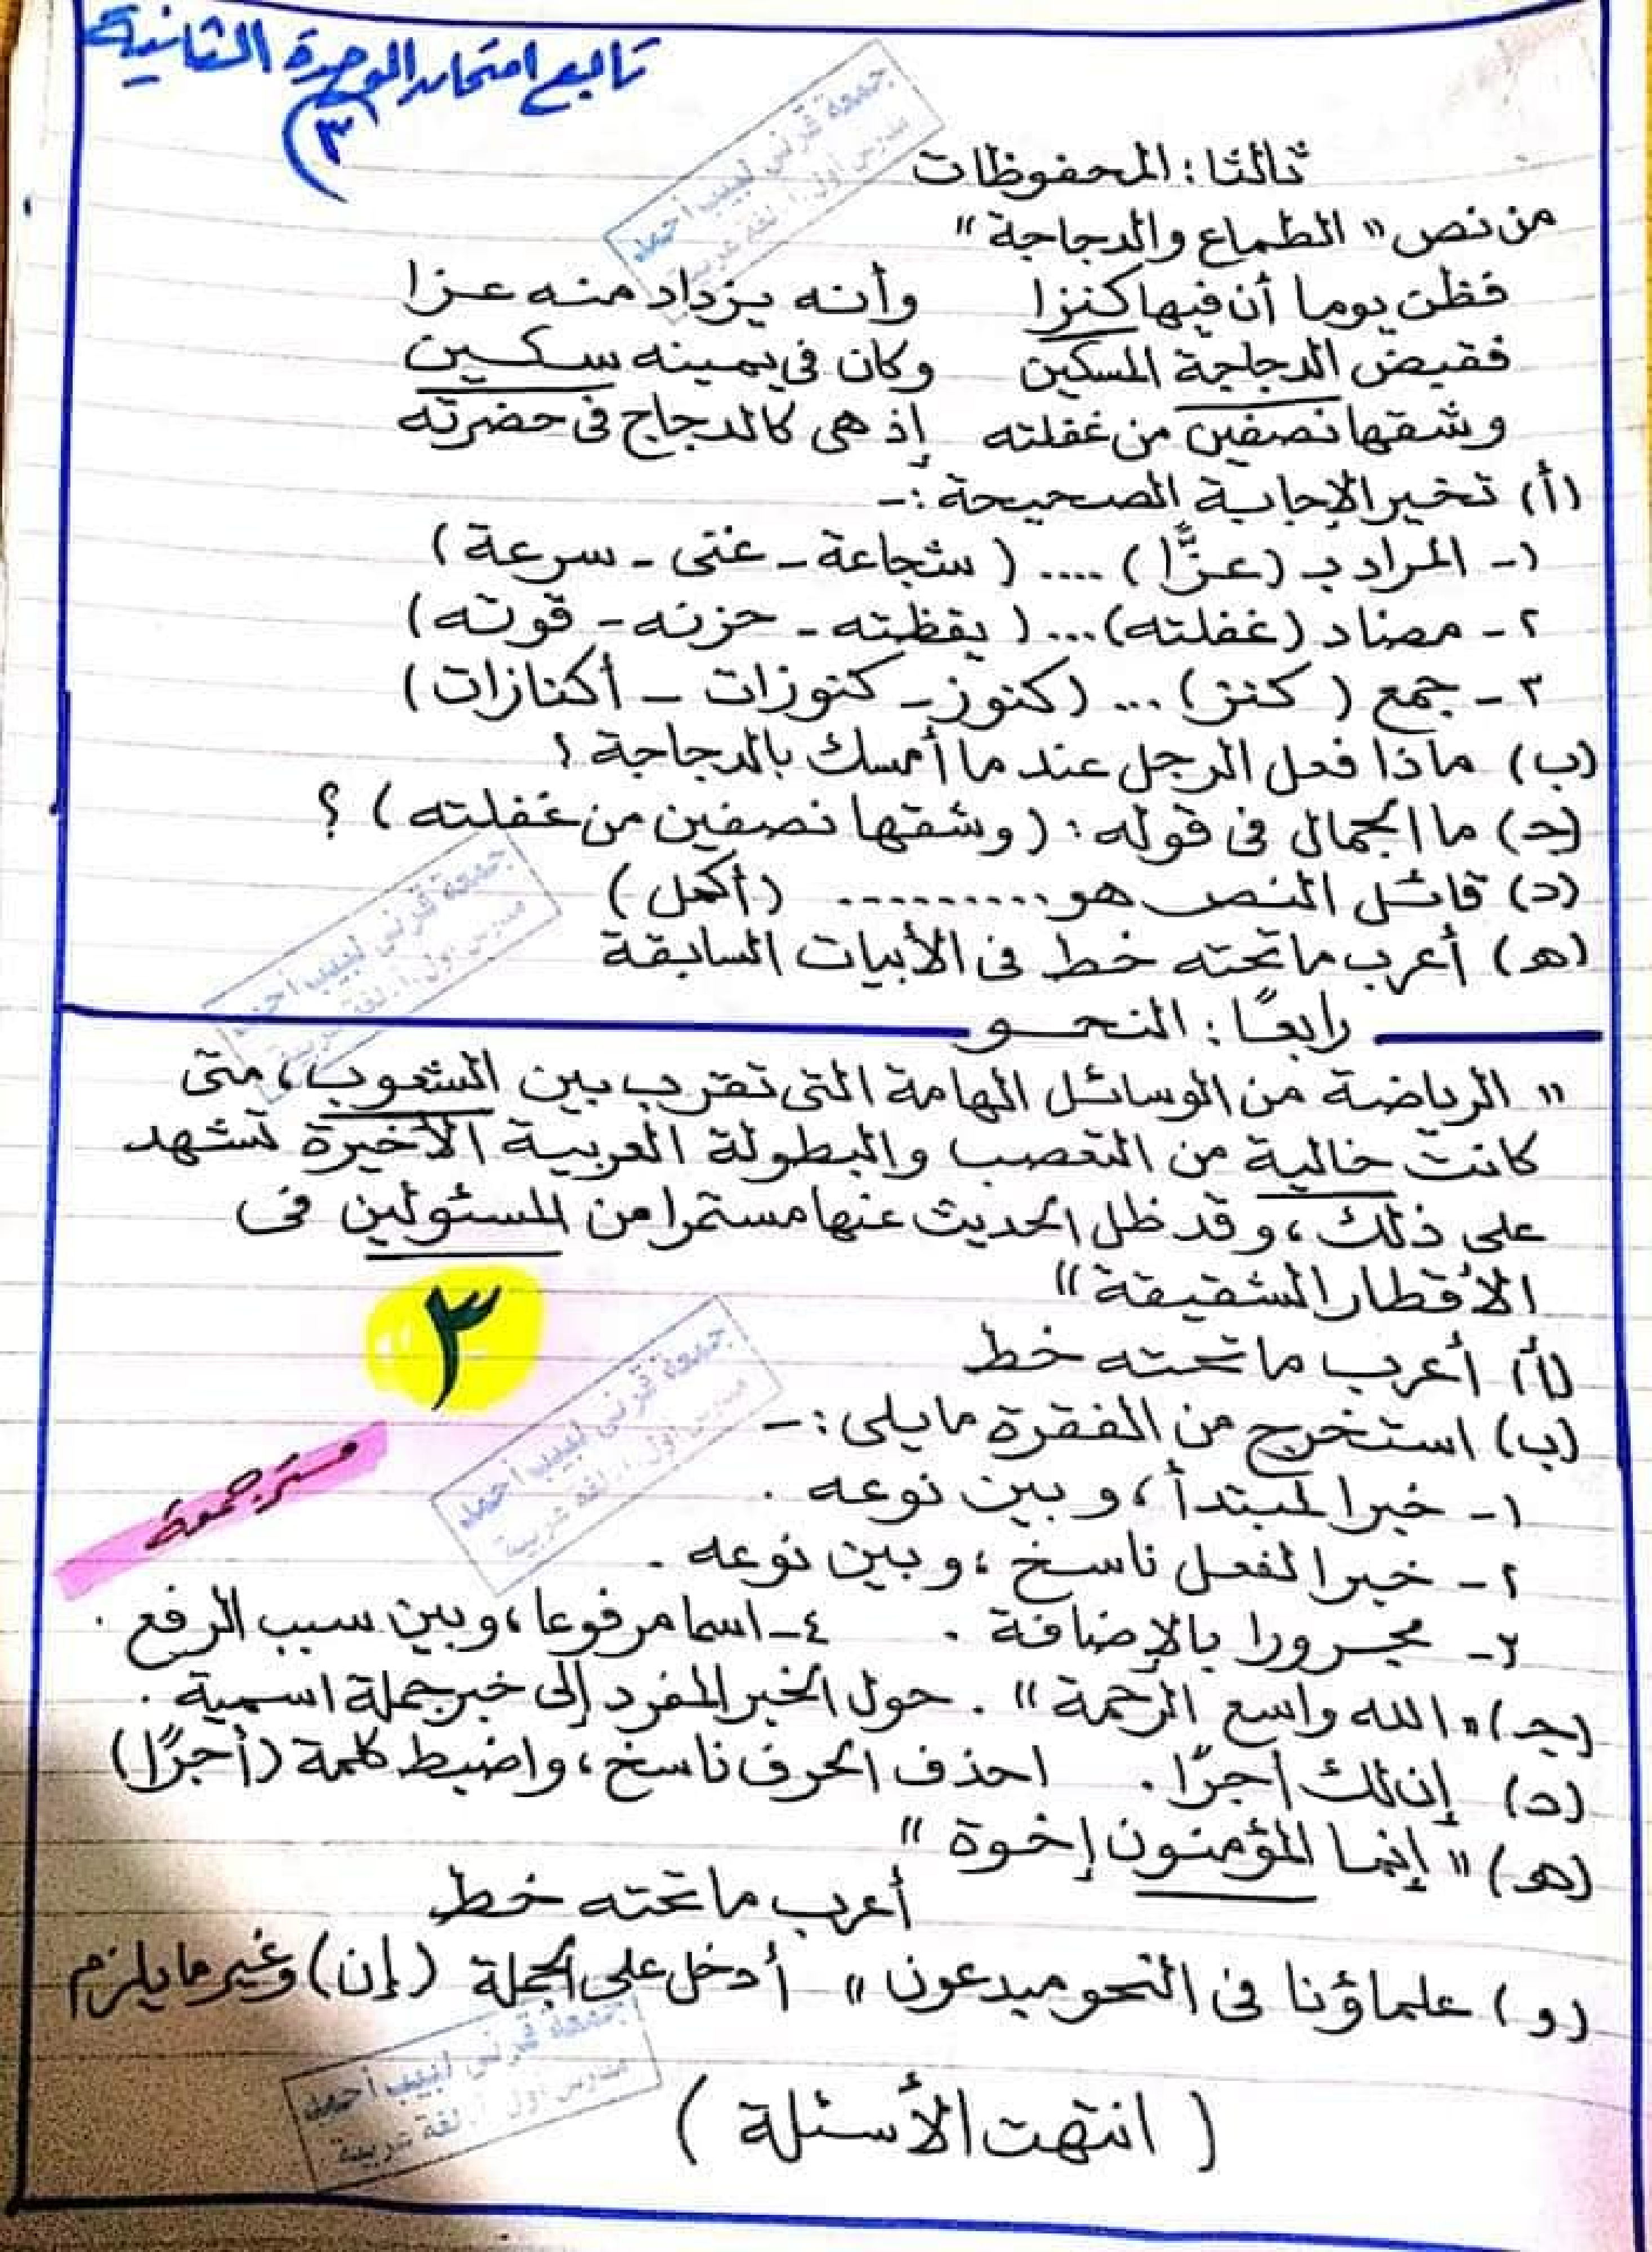 تابع امتحان الوحدة الثانية
(٣)
ثالثا : المحفوظات
من نص " الطماع والدجاجة "
فظن يوما أن فيها كنزا وأنه يزداد منه عزا
فقبض الدجاجة المسكين وكان في يمينه سكين
وشقها نصفين من غفلته إذ هي كالدجاج في حضرته
(أ) تخير الإجابة الصحيحة :-
١- المراد بـ (عزًّا) .... ( شجاعة - غنى - سرعة )
٢- مضاد (غفلته) ... ( يقظته - حزنه - قوته )
٣- جمع ( كنز ) ... (كنوز - كنوزات - أكنازات )
(ب) ماذا فعل الرجل عند ما أمسك بالدجاجة ؟
(جـ) ما الجمال في قوله : ( وشقها نصفين من غفلته ) ؟
(د) قائل النص هو .......... (أكمل )
(هـ) أعرب ما تحته خط في الأبيات السابقة
رابعًا : النحو
" الرياضة من الوسائل الهامة التى تقرب بين الشعوب ، متى
كانت خالية من التعصب والبطولة العربية الأخيرة تشهد
على ذلك ، وقد ظل الحديث عنها مستمرا من المسئولين فى
الأقطار الشقيقة "
(أ) أعرب ما تحته خط
٣
(ب) استخرج من الفقرة ما يلى :-
١- خبرا لمبتدأ ، و بين نوعه .
مستر جمعة
٢- خبرا لفعل ناسخ ، و بين نوعه .
٣- مجرورا بالإضافة . ٤- اسما مرفوعا ، وبين سبب الرفع .
(جـ) " الله واسع الرحمة " . حول الخبر المفرد إلى خبر جملة اسمية .
(د) إن لك أجرًا . احذف الحرف ناسخ ، واضبط كلمة (أجرًا)
(هـ) " إنما المؤمنون إخوة "
أعرب ما تحته خط
(و) علماؤنا فى النحو مبدعون " أدخل على الجملة (إن) وغير ما يلزم
( انتهت الأسئلة )
جمعة قرني لبيب أحمد
مدرس أول أ. لغة عربية
جمعة قرني لبيب أحمد
مدرس أول أ. لغة عربية
جمعة قرني لبيب أحمد
مدرس أول أ. لغة عربية
جمعة قرني لبيب أحمد
مدرس أول أ. لغة عربية